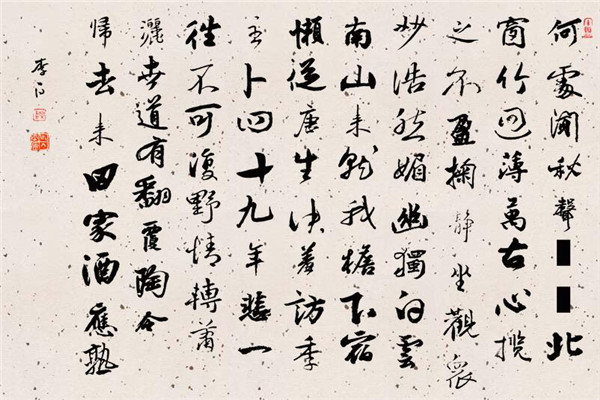 何處聞秋聲■■北
窗竹迴薄萬古心攬
之不盈掬靜坐觀衆
妙浩然媚幽獨白雲
南山来就我檐下宿
懶從唐生決羞訪季
主卜四十九年悲一
往不可復野情轉蕭
灑世道有翻覆陶令
歸去来田家酒應熟
李白